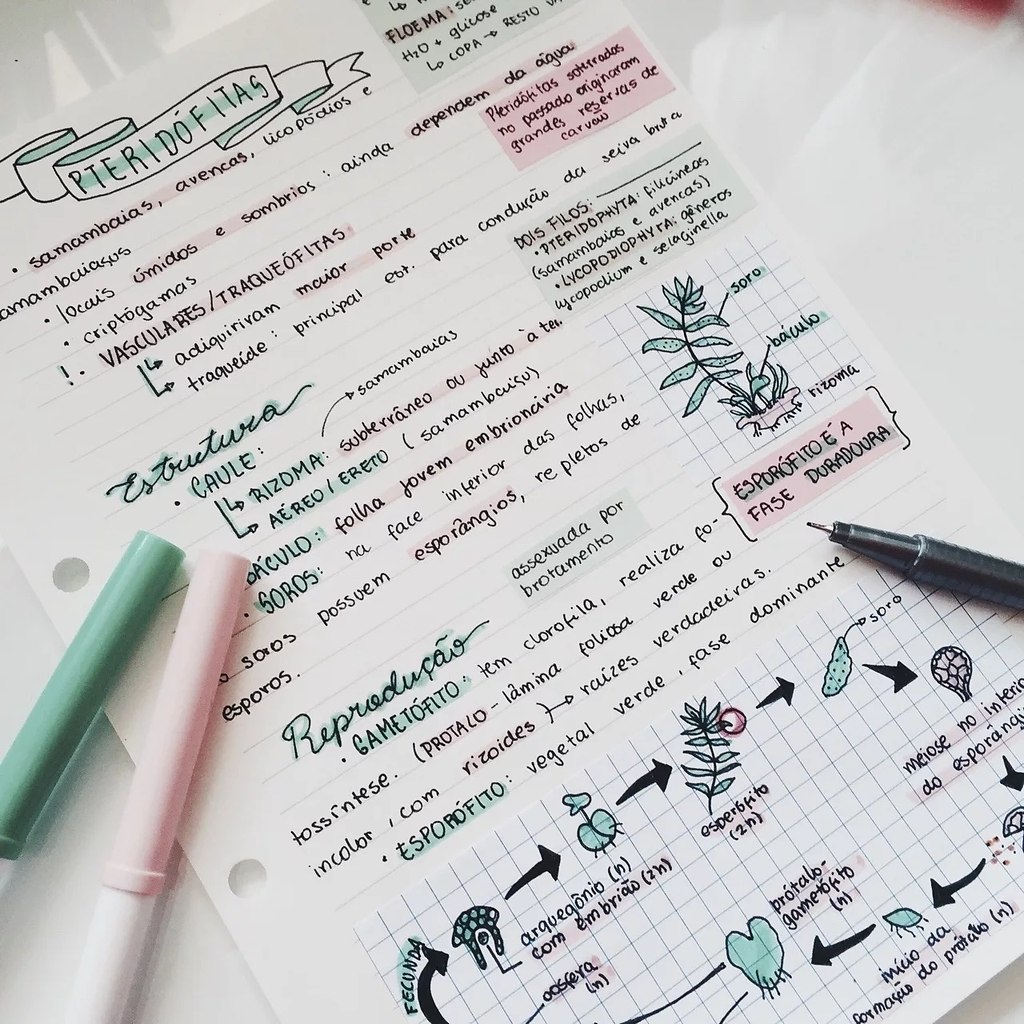 FLOEMA:
H₂O + glicose
↳ COPA → RESTO
PTERIDÓFITAS
• samambaias, avencas, licopódios e
samambaiaçus
• locais úmidos e sombrios: ainda dependem da água
• criptógamas
!. VASCULARES/TRAQUEÓFITAS
↳ adiquiriram maior porte
↳ traqueíde: principal est. para condução da seiva bruta
Pteridófitas soterradas
no passado originaram
grandes reservas de
carvão
DOIS FILOS:
• PTERIDOPHYTA: filicíneas
(samambaias e avencas)
• LYCOPODIOPHYTA: gêneros
lycopodium e selaginella
soro
báculo
rizoma
Estrutura
• CAULE:
→ samambaias
↳ RIZOMA: subterrâneo ou junto à ter.
↳ AÉREO/ERETO (samambaiaçu)
BÁCULO: folha jovem embrionária
• SOROS: na face inferior das folhas,
soros possuem esporângios, repletos de
esporos.
ESPORÓFITO É A
FASE DURADOURA
assexuada por
brotamento
Reprodução
• GAMETÓFITO: tem clorofila, realiza fo-
tossíntese. (PROTALO - lâmina foliosa verde ou
incolor, com rizoides) → raízes verdadeiras.
• ESPORÓFITO: vegetal verde, fase dominante
soro
meiose no interio
do esporâng
esperófito
(2n)
arquegônio (n)
com embrião (2n)
FECUNDA
oosfera
(n)
prótalo-
gametófito
(n)
início da
formação do prótalo (n)